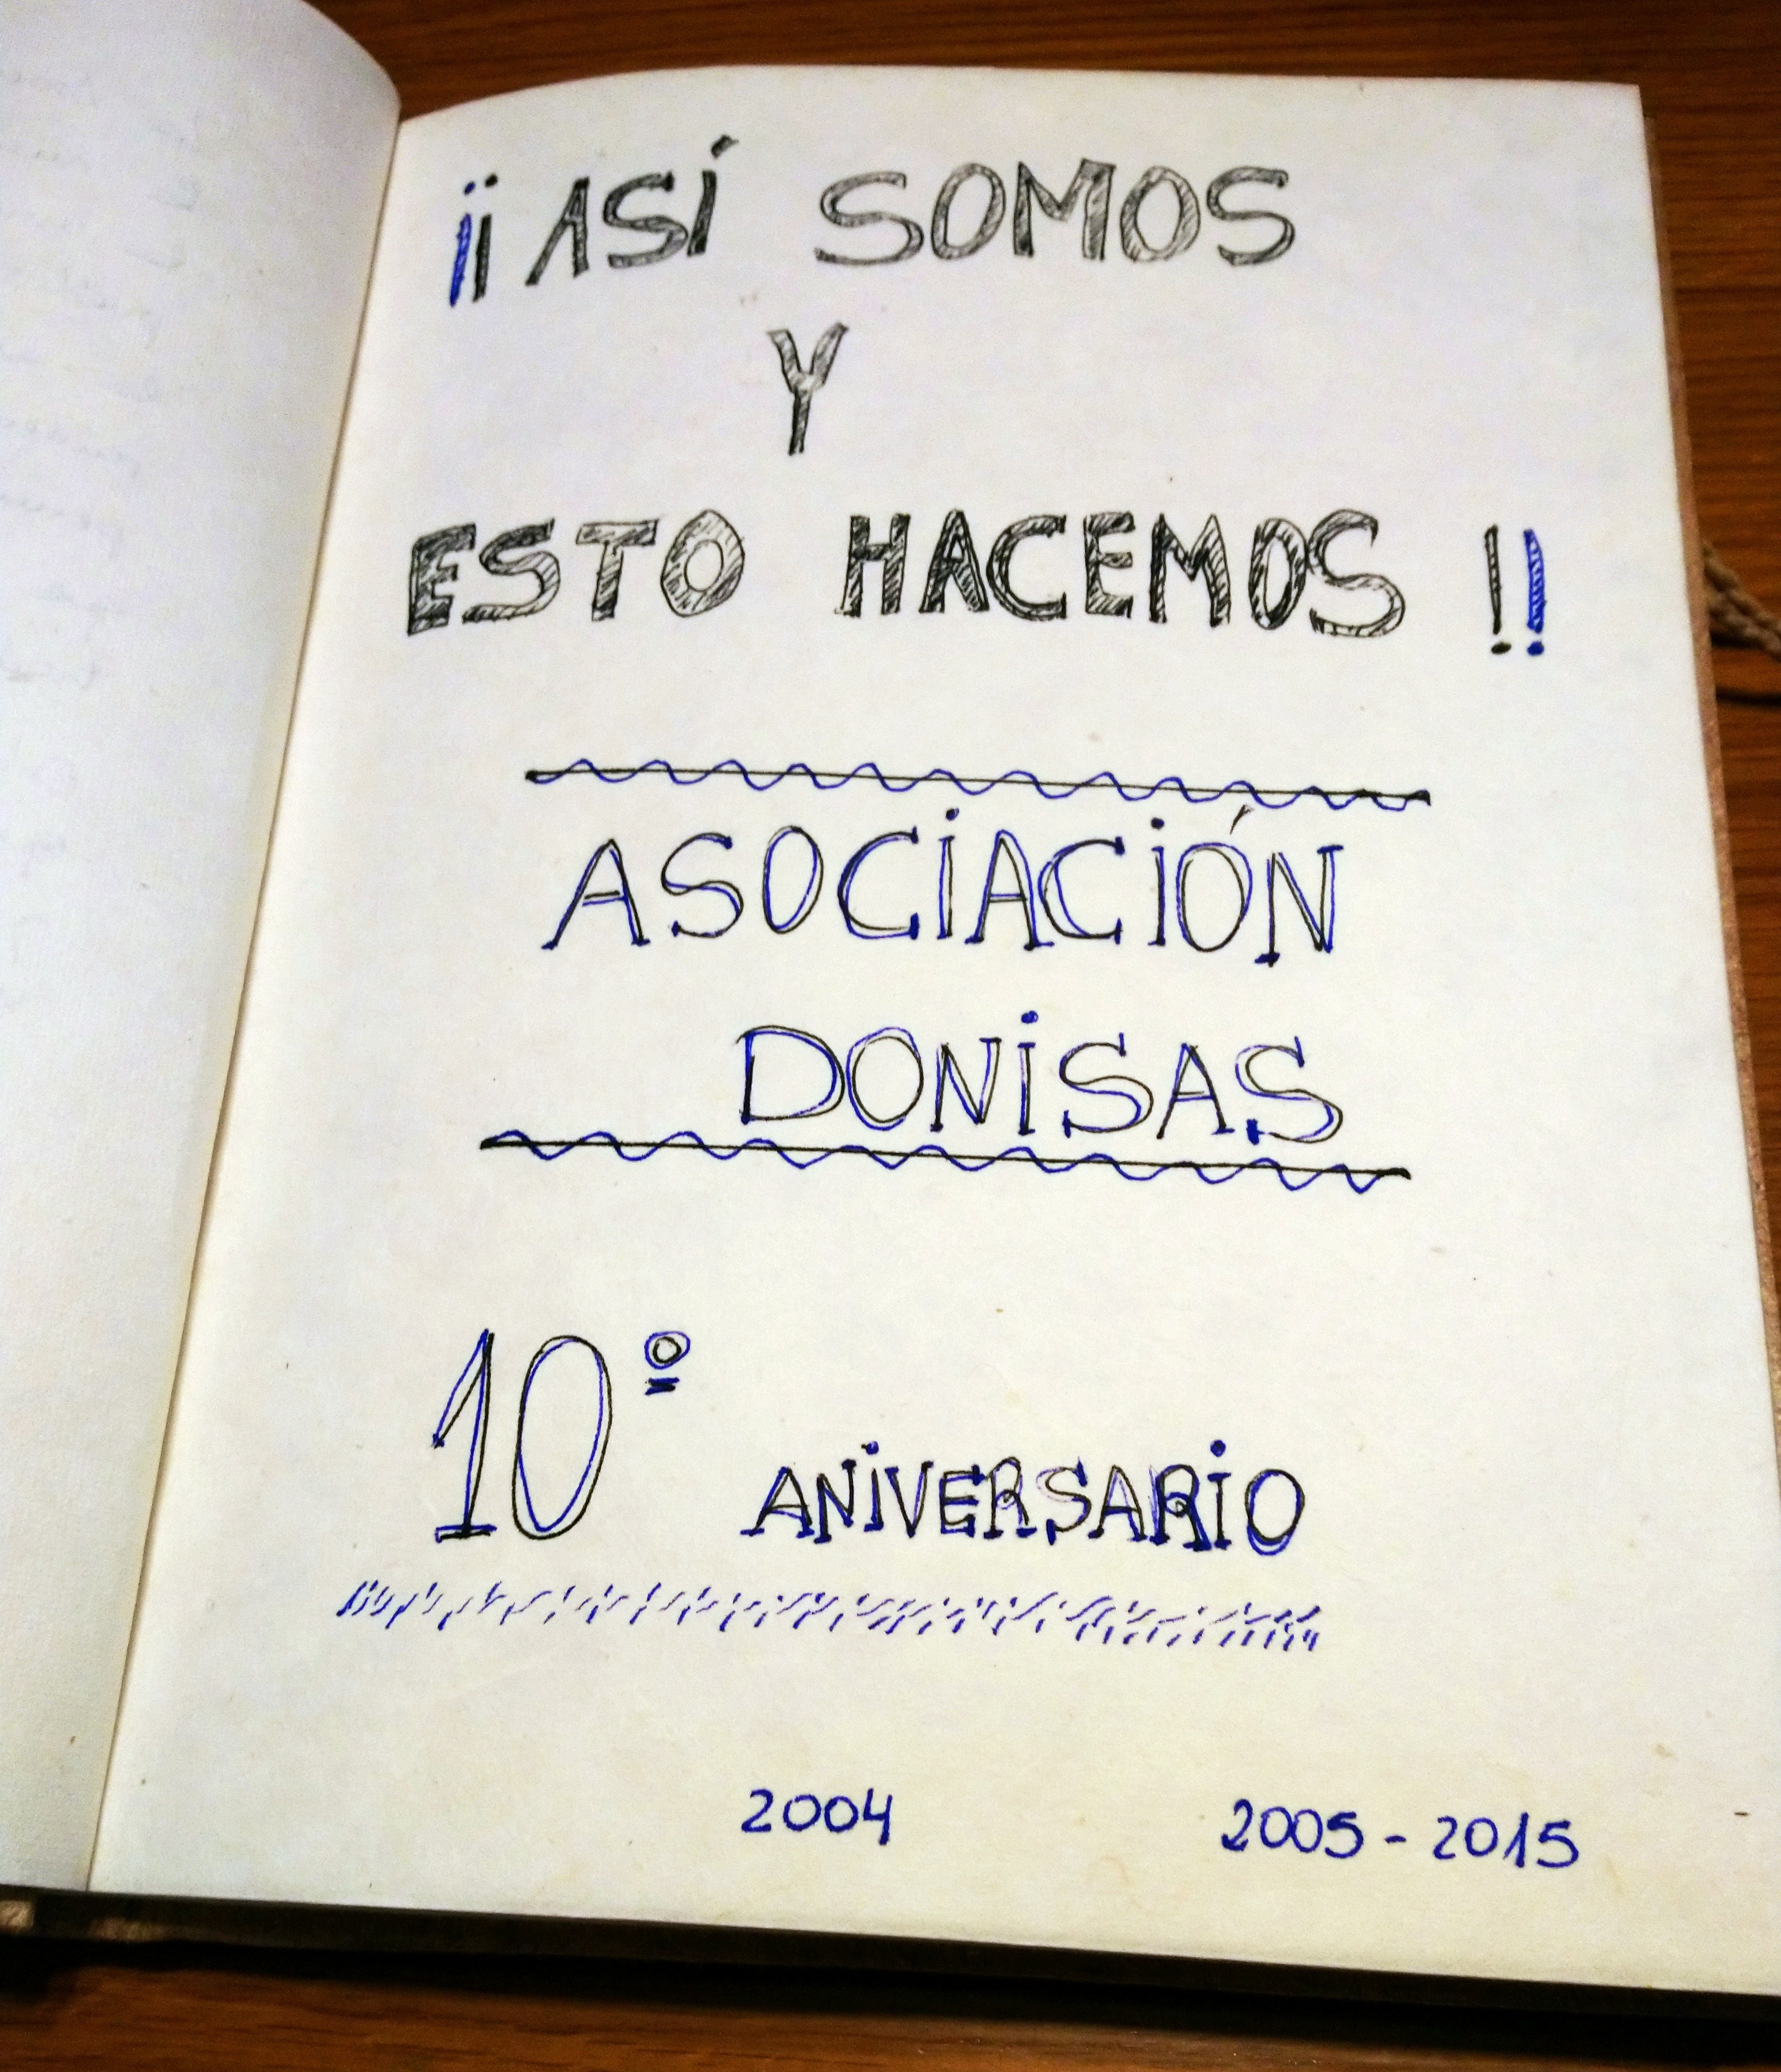 ¡¡ASÍ SOMOS
Y
ESTO HACEMOS!!
ASOCIACIÓN
DONISAS
10º ANIVERSARIO
2004 2005-2015